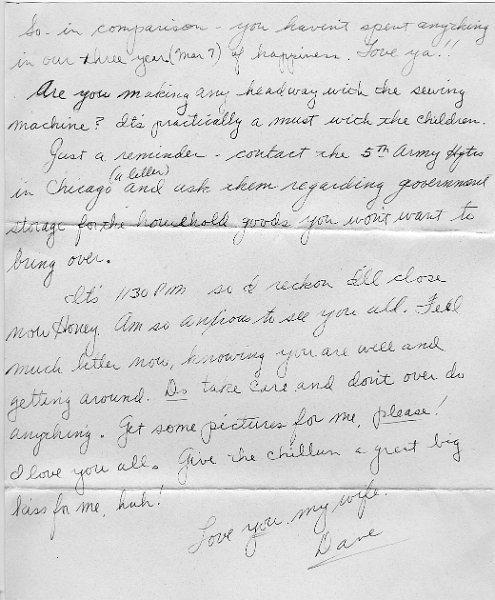 So - in comparison - you haven't spent anything
in our three year (Mar 7) of happiness. Love ya!!
Are you making any headway with the sewing
machine? It's practically a must with the children.
Just a reminder - contact the 5th Army Hqtrs
(a letter)
in Chicago and ask them regarding government
storage for the household goods you won't want to
bring over.
It's 1130 PM so I reckon I'll close
now Honey. Am so anxious to see you all. Feel
much better now, knowing you are well and
getting around. Do take care and don't over do
anything. Get some pictures for me, please!
I love you all. Give the chillun a great big
kiss for me, huh!
Love you my wife.
Dave